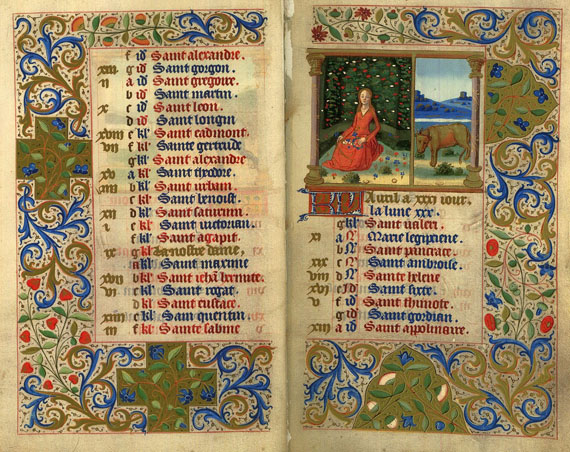 f id Saint alexandre.
xiii g id Saint gorgon.
ii a id Saint gregoire.
b id Saint martin.
x c id Saint leon.
d id Saint longin
xviii e kl' Saint eadmont.
vii f kl' Sainte gertrude
g kl' Saint alexandre
xv a kl' Saint theodore.
iiii b kl' Saint urbain.
c kl' Saint benoist.
xii d kl' Saint saturnin.
i e kl' Saint victorian.
f kl' Saint agapit.
ix g kl' la nostre dame,
a kl' Saint maxime
xvii b kl' Saint
vi c kl' Saint rogat.
d kl' Saint eustace.
xiiii e kl' Sain quentin.
iii f kl' Sainte sabine
Auril a xxx iour.
la lune xxx.
g kl' Saint valeri.
xi a N' Marie legipciene.
b N' Saint pancrace.
xix c N' Saint ambroise.
viii d N' Sainte helene
xvi e id Saint sixte.
v f id Saint thimote.
g id Saint gordian.
xiii a id Saint apolinaire.